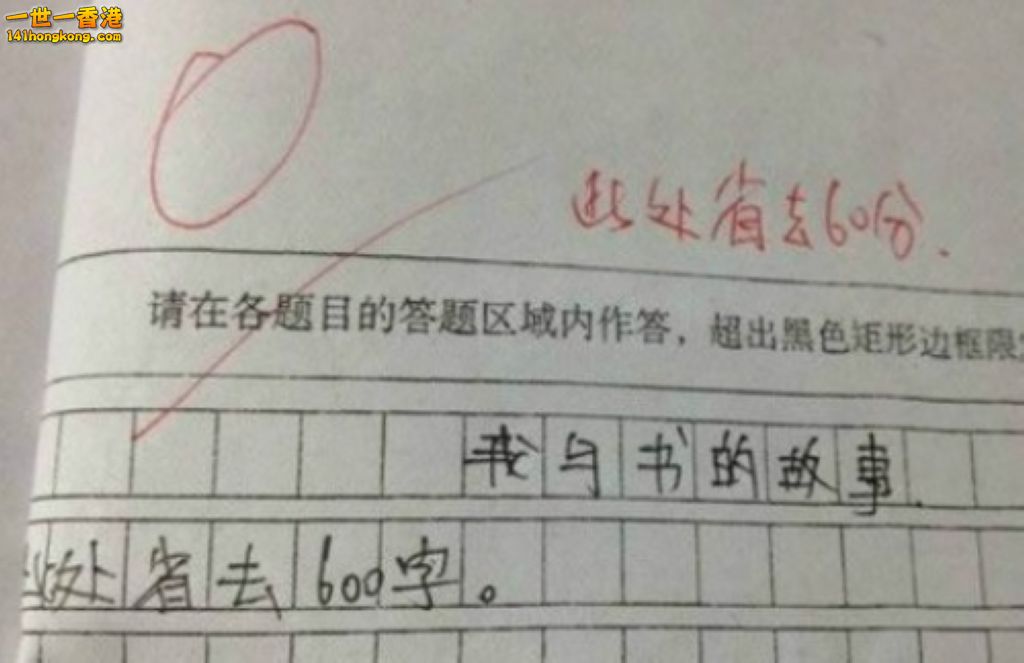 一世一香港
141hongkong.com
0
此处省去60分.
请在各题目的答题区域内作答，超出黑色矩形边框限
我与书的故事.
此处省去600字。